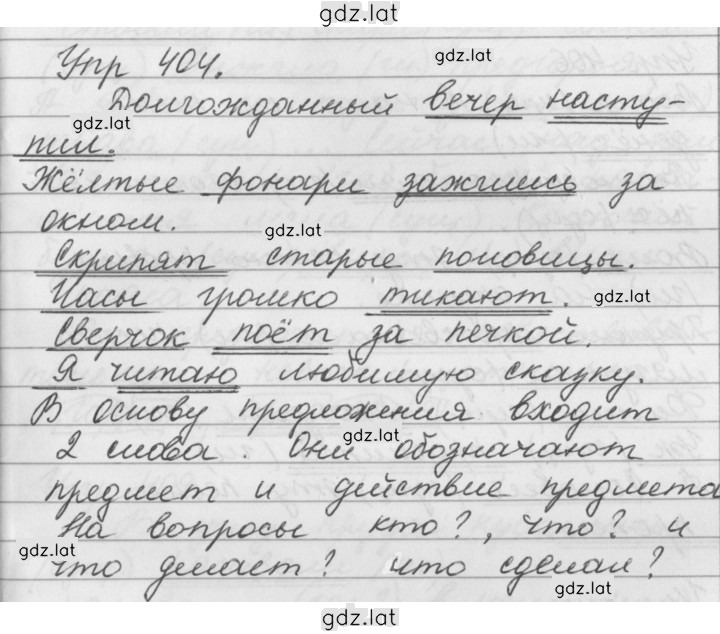 gdz.lat
Упр 404.
gdz.lat
Долгожданный вечер насту-
gdz.lat
пил.
Жёлтые фонари зажглись за
окном.
gdz.lat
Скрипят старые половицы.
Часы громко тикают.
gdz.lat
Сверчок поёт за печкой.
Я читаю любимую сказку.
В основу предложения входит
gdz.lat
2 слова. Они обозначают
предмет и действие предмета
На вопросы кто?, что? и
gdz.lat
что делает? что сделал?
gdz.lat
gdz.lat